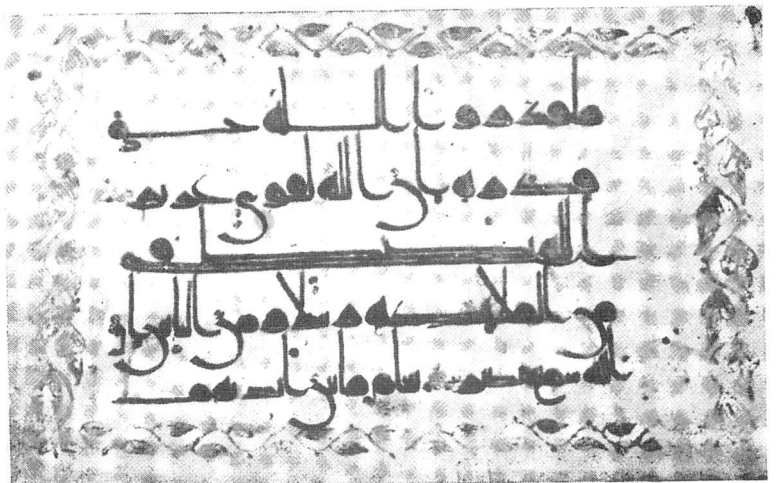 ما قدروا الله حق
قدره ان الله لقوي عزيز
الله يصطفي
من الملائكة رسلا ومن الناس ا
ن الله سميع بصير يعلم ما بين ايديهم